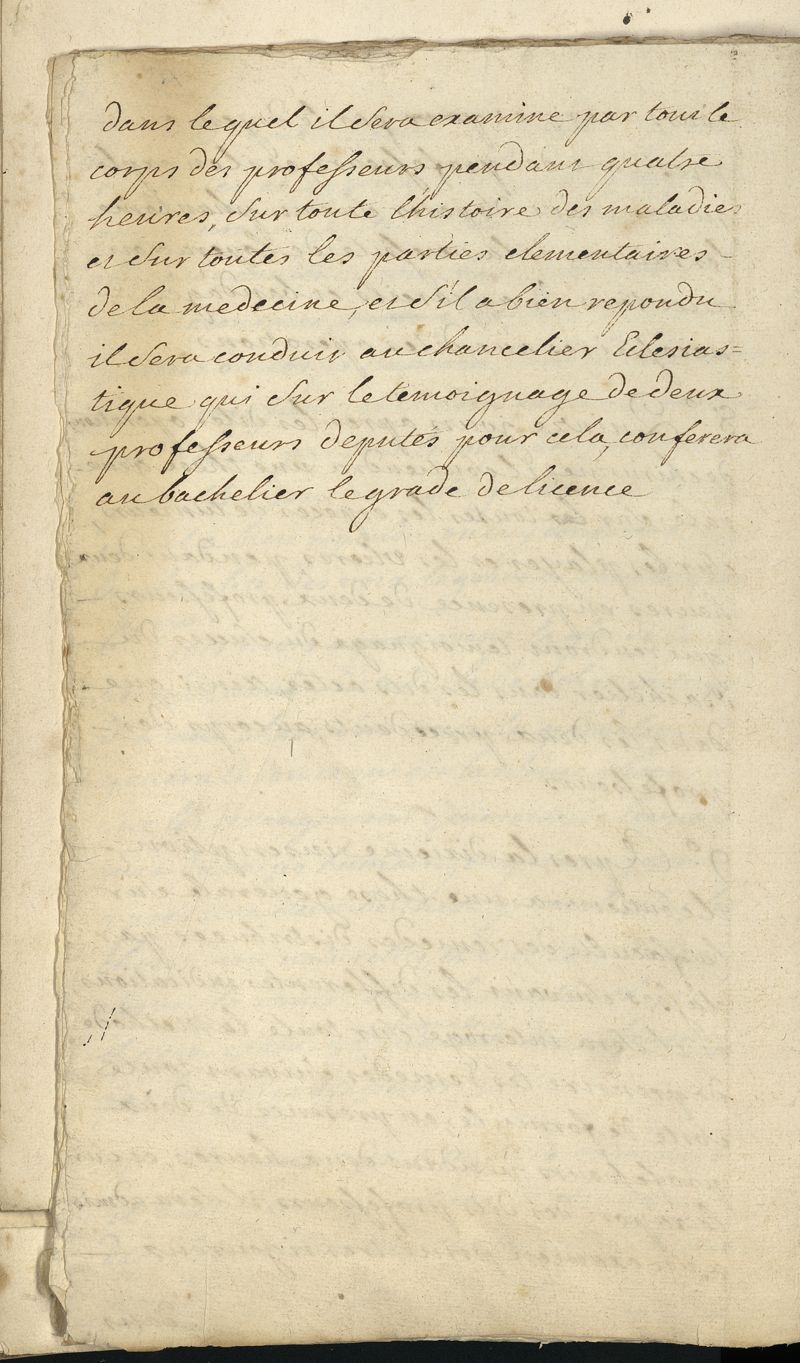 dans lequel il sera examine par tout le
corps des professeurs pendant quatre
heures, sur toute l'histoire des maladies
et sur toutes les parties elementaires
de la medecine, et s'il a bien repondu
il sera conduit au chancelier Eclesias=
tique qui sur le temoignage de deux
professeurs deputés pour cela, conferera
au bachelier le grade de licence